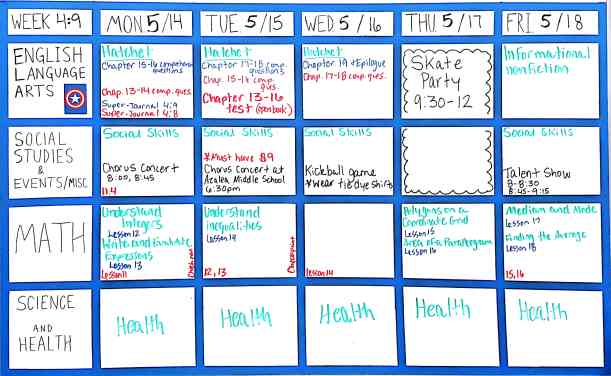 WEEK 4:9
MON 5/14
TUE 5/15
WED 5/16
THU 5/17
FRI 5/18
ENGLISH
LANGUAGE
ARTS
Hatchet
Chapter 15-16 comprehension
questions
Chap. 13-14 comp. ques.
Super-Journal 4:9
Super-Journal 4:8
Hatchet
Chapter 17-18 comp.
questions
Chap. 15-16 comp.
ques.
Chapter 13-16
test (open book)
Hatchet
Chapter 19 + Epilogue
Chap. 17-18 comp. ques.
Skate
Party
9:30-12
Informational
nonfiction
SOCIAL
STUDIES
&
EVENTS/MISC
Social Skills
Chorus Concert
8:00, 8:45
11.4
Social Skills
*Must have $9
Chorus Concert at
Azalea Middle School
6:30pm
Social Skills
Kickball game
*Wear tie dye shirts
Social Skills
Talent Show
8-8:30
8:45-9:15
MATH
Understand
Integers
Lesson 12
Write and Evaluate
Expressions
Lesson 13
Lesson 11
Understand
Inequalities
Lesson 14
12, 13
Checkpoint
Lesson 14
Polygons on a
Coordinate Grid
Lesson 15
Area of a Parallelogram
Lesson 16
Median and Mode
Lesson 17
Finding the Average
Lesson 18
15, 16
SCIENCE
AND
HEALTH
Health
Health
Health
Health
Health